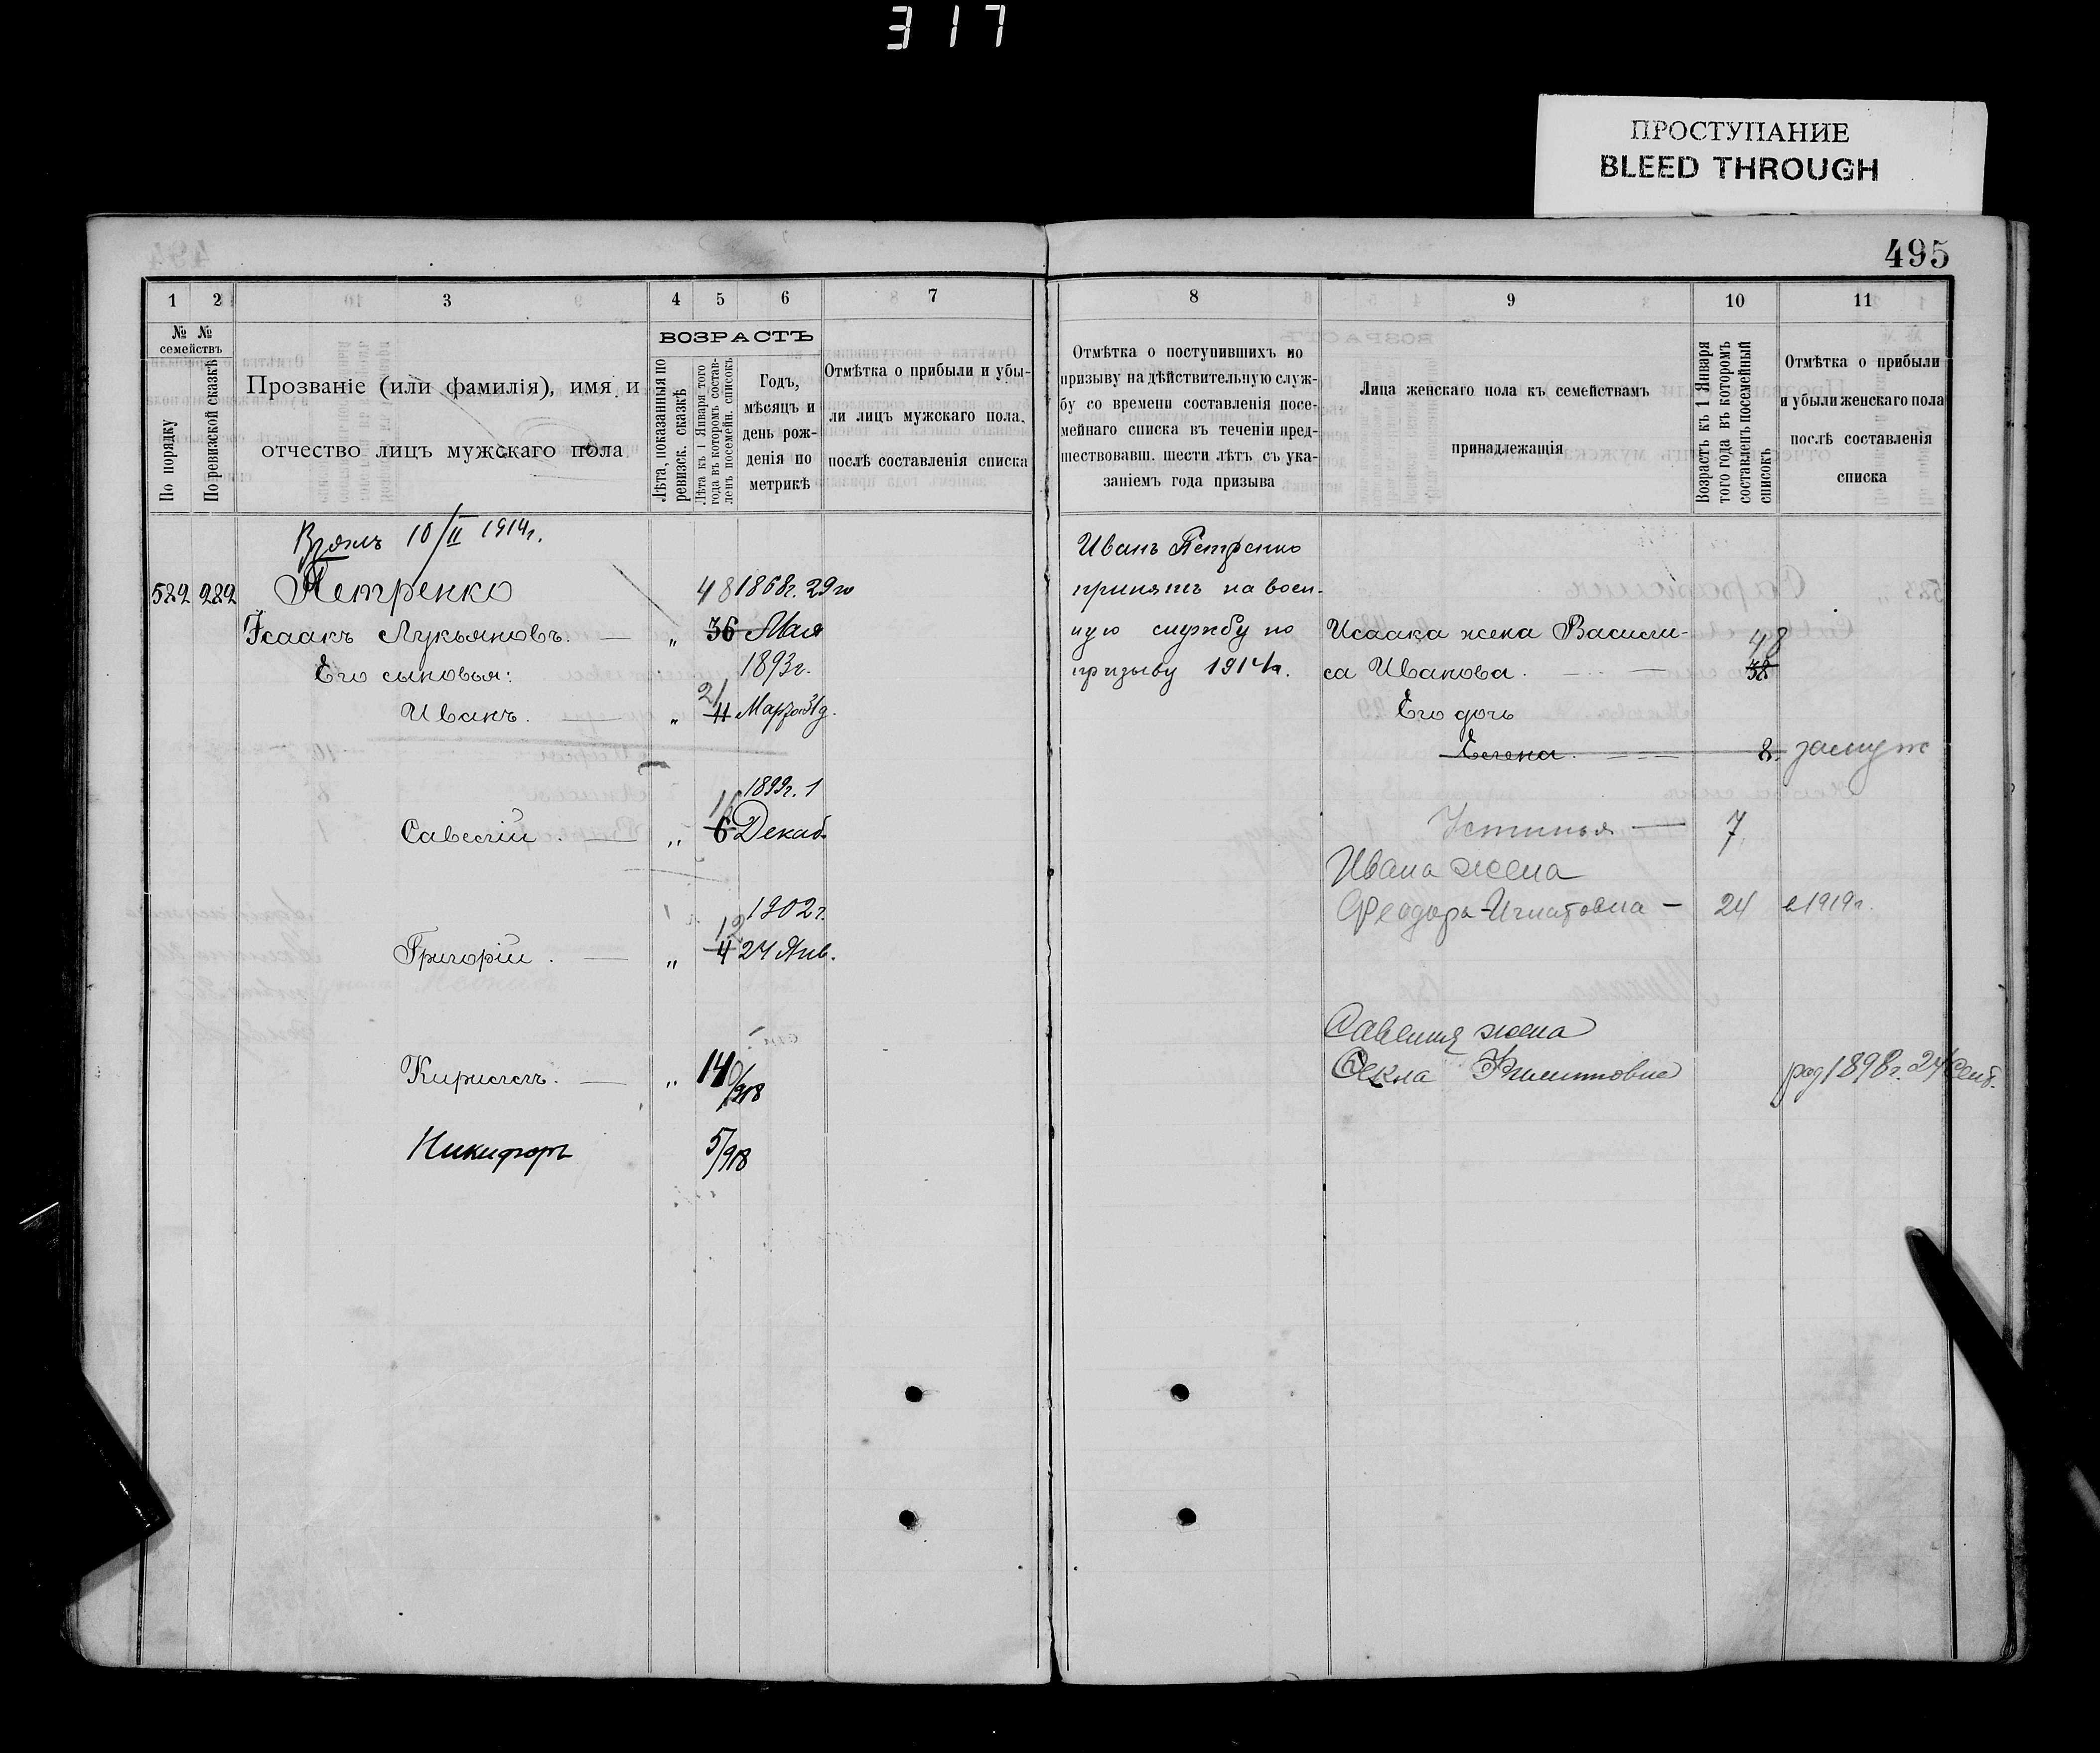 317
ПРОСТУПАНИЕ
BLEED THROUGH
495
1 2 3 4 5 6 7
№ № семействъ
По порядку
По ревизской сказкѣ
Прозваніе (или фамилія), имя и
отчество лицъ мужскаго пола
ВОЗРАСТЪ
Лѣта, показанныя по
ревизск. сказкѣ
Лѣта къ 1 Января того
года въ которомъ состав-
ленъ посемейн. списокъ
Годъ,
мѣсяцъ и
день рож-
денія по
метрикѣ
Отмѣтка о прибыли и убы-
ли лицъ мужскаго пола,
послѣ составленія списка
10/II 1914г.
582 282 Петренко 48 1868г. 29го
Исаакъ Лукьяновъ. — „ 36 Мая
Его сыновья: 1893г.
21
Иванъ. — „ 11 Марта 31 д.
1899г. 1
16
Савелій. — „ 6 Декаб.
1902г.
12
Григорій. — „ 4 24 Янв.
Кириллъ. — „ 14/918
Никифоръ 5/918
8 9 10 11
Отмѣтка о поступившихъ по
призыву на дѣйствительную служ-
бу со времени составленія посе-
мейнаго списка въ теченіи пред-
шествовавш. шести лѣтъ съ ука-
заніемъ года призыва
Лица женскаго пола къ семействамъ
принадлежащія
Возрастъ къ 1 Января
того года въ которомъ
составленъ посемейный
списокъ
Отмѣтка о прибыли
и убыли женскаго пола
послѣ составленія
списка
Иванъ Петренко
принятъ на воен-
ную службу по
призыву 1914г.
Исаака жена Васили-
48
са Иванова. — 38
Его дочь
Елена. — 8. замуж
Устинья — 7.
Ивана жена
Феодора Игнатовна — 24 в 1919г.
Савелия жена
Фекла Филипповна род 1898г. 24 Сент.